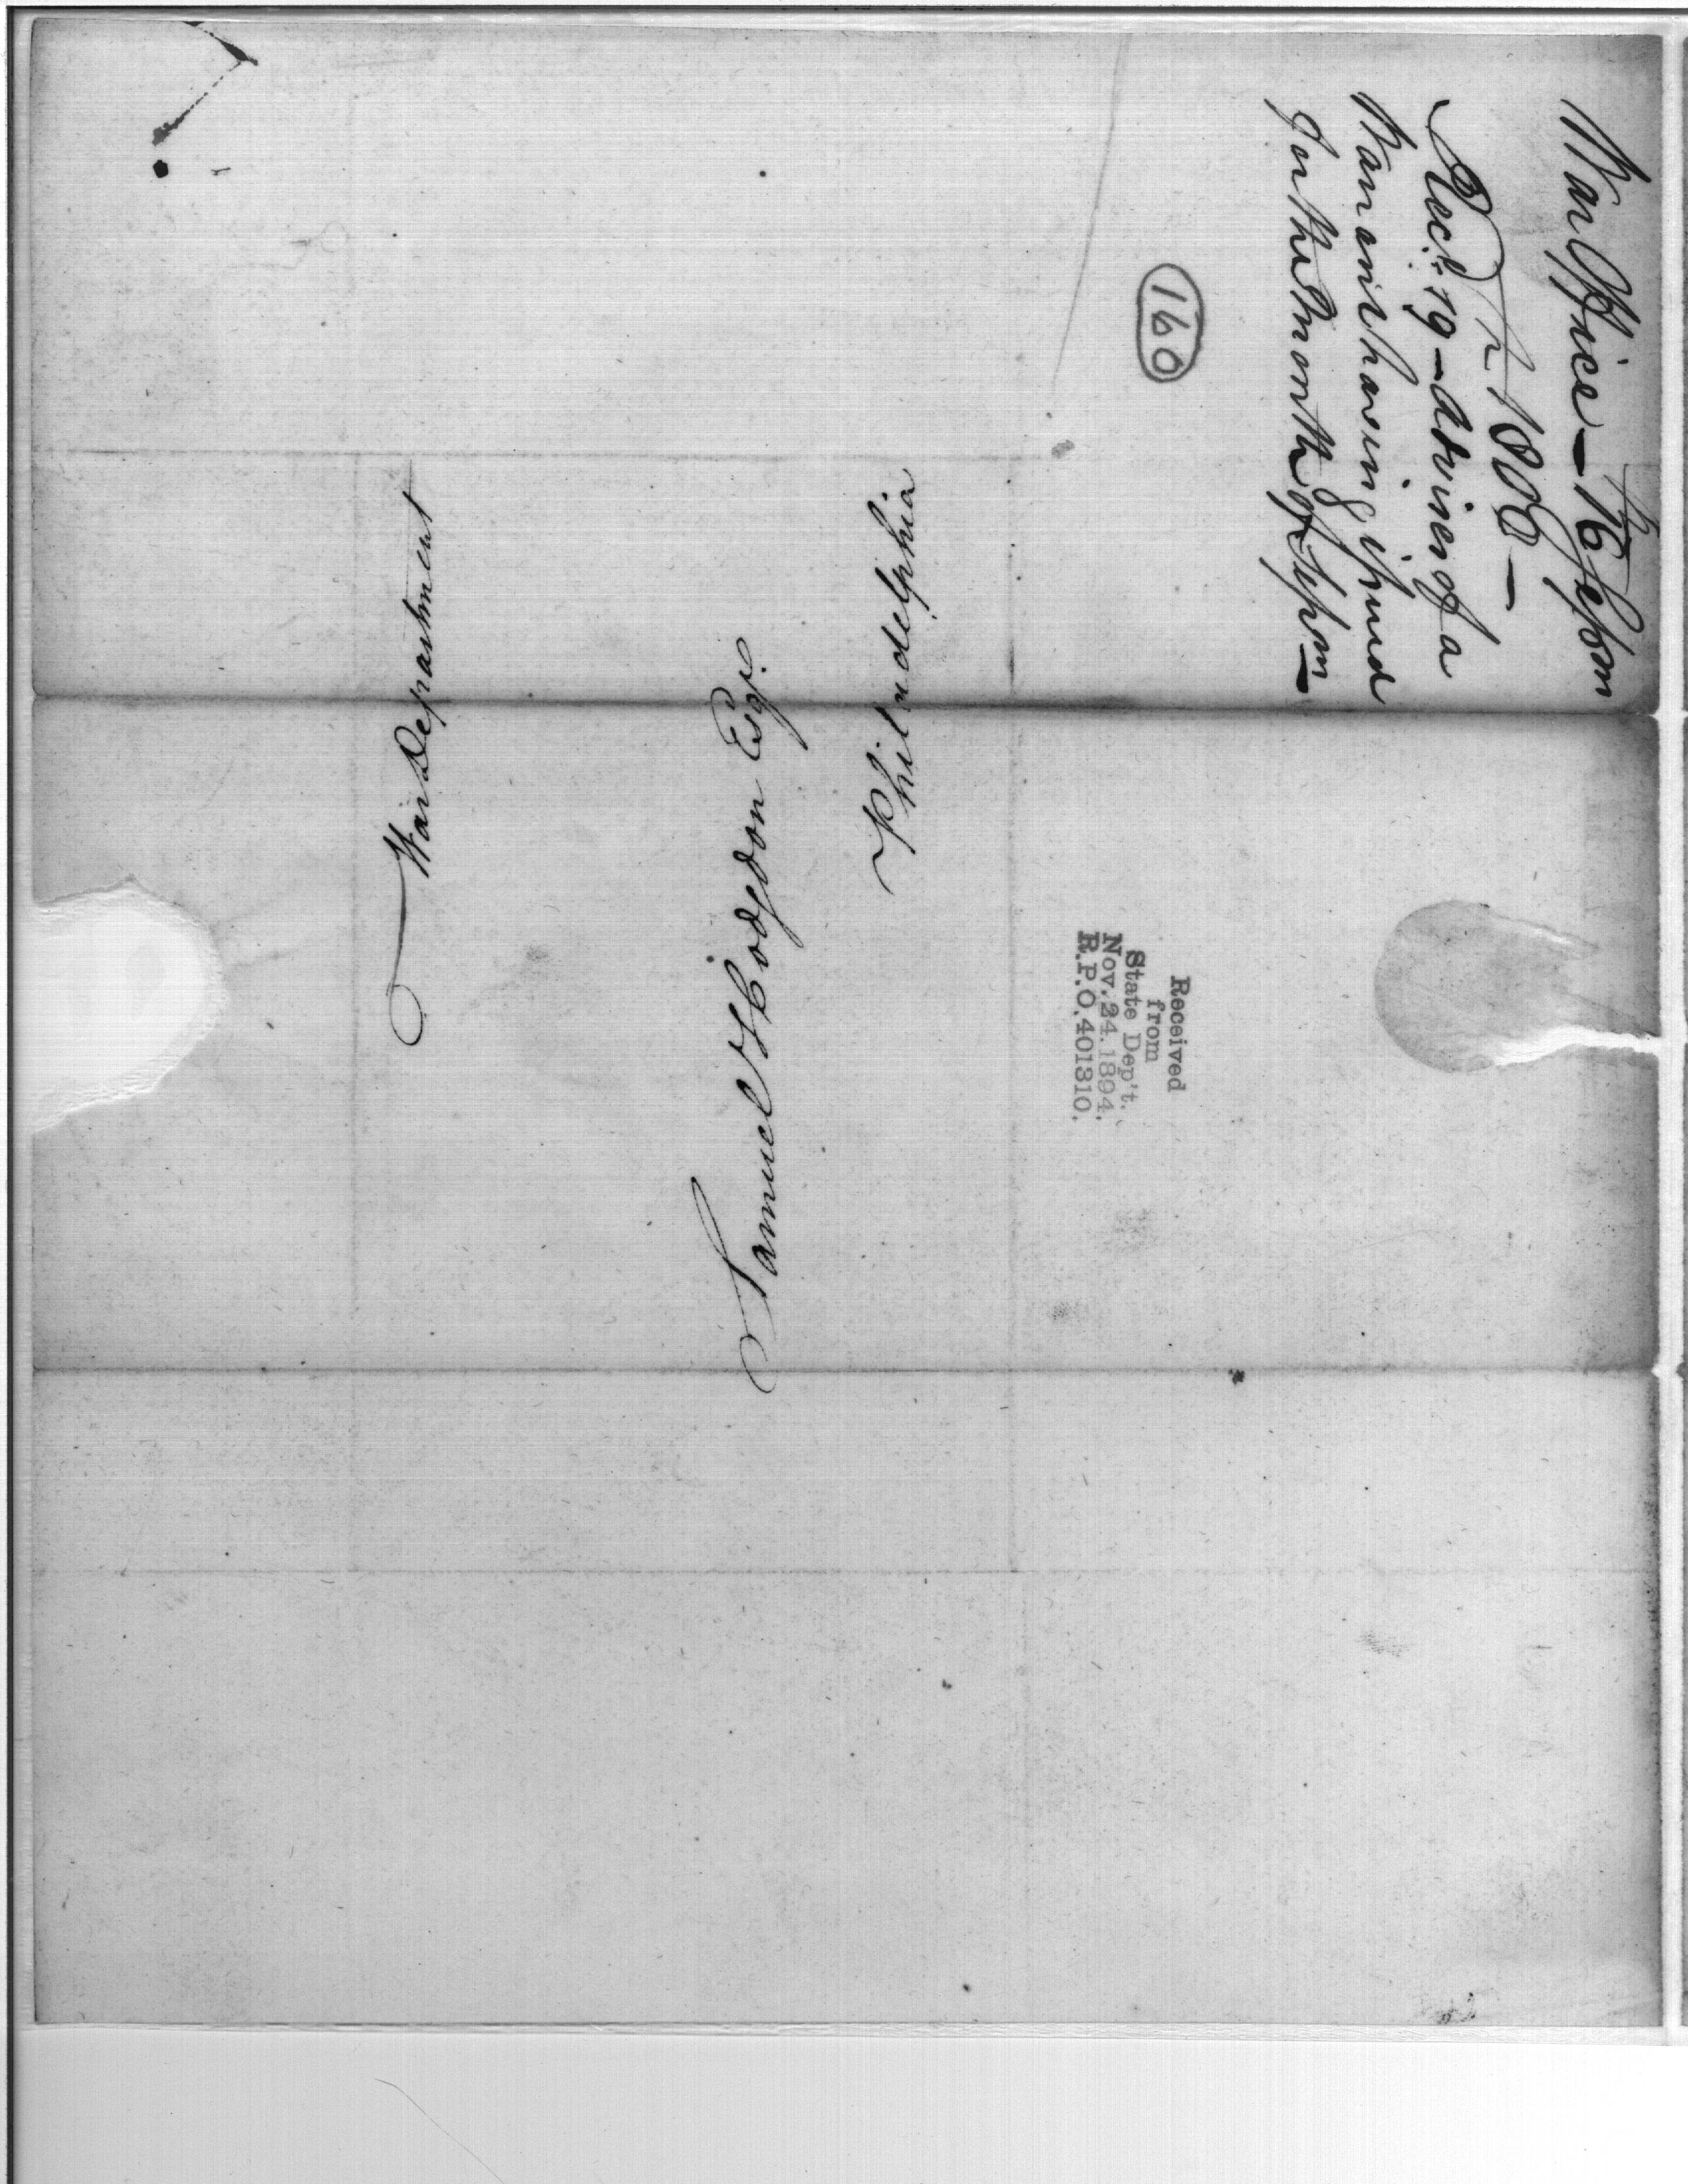 War Office — 16 Sepbm
1800 —
Recd. 19 — advising of a
Warrant having issued
for the month of Sepm —
160
War Department
Samuel Hodgdon Esqr.
Philadelphia
Received
from
State Dep't.
Nov. 24. 1894.
R.P.O. 401310.